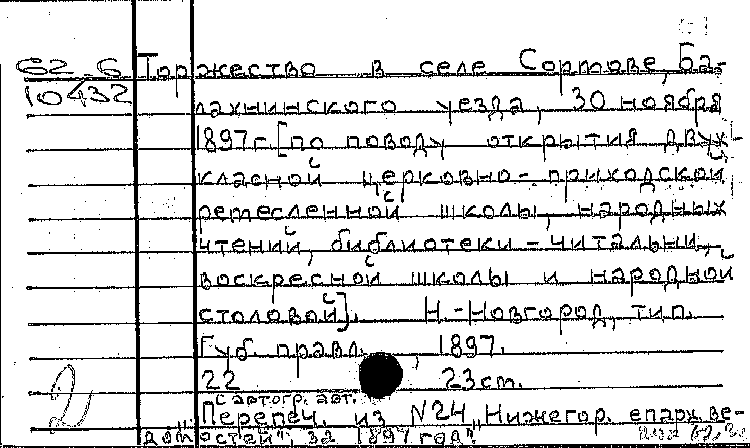 62-6 Торжество в селе Сормове, Ба-
10432 лахнинского уезда, 30 ноября
1897г. [по поводу открытия двух-
класной церковно-приходской
ремесленной школы, народных
чтений, библиотеки-читальни,
воскресной школы и народной
столовой]. Н.-Новгород, тип.
Губ. правл., 1897.
22 23 см.
с автогр. авт.
2 "Перепеч. из N24 "Нижегор. епарх. ве-
домостей", за 1897 год"